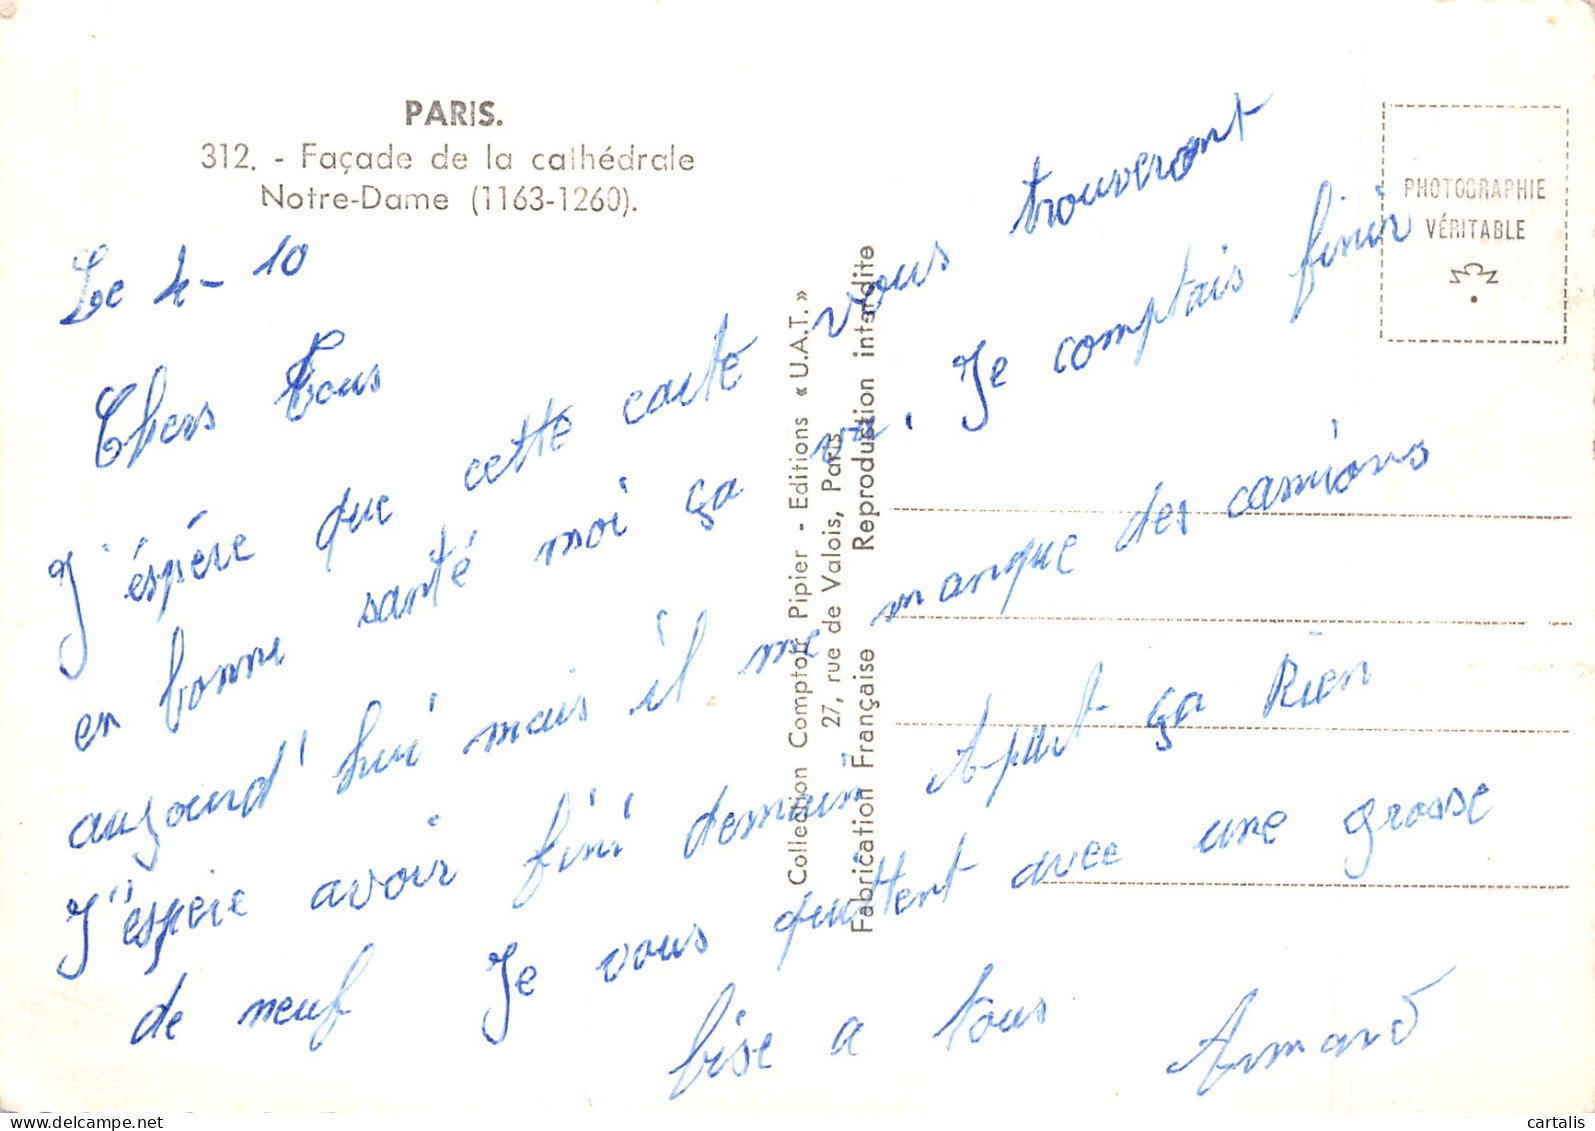 PARIS.
312. - Façade de la cathédrale
Notre-Dame (1163-1260).
PHOTOGRAPHIE
VÉRITABLE
Le 4-10
Chers Tous
J'éspére que cette carte vous trouveront
en bonne santé moi ça va. Je comptais finir
aujourd'hui mais il me manque des camions
J'espére avoir fini demain Apart ça Rien
de neuf Je vous quittent avec une grosse
bise a tous Armand
Collection Comptoir Pipier - Editions « U.A.T. »
27, rue de Valois, Paris
Fabrication Française Reproduction interdite
cartalis